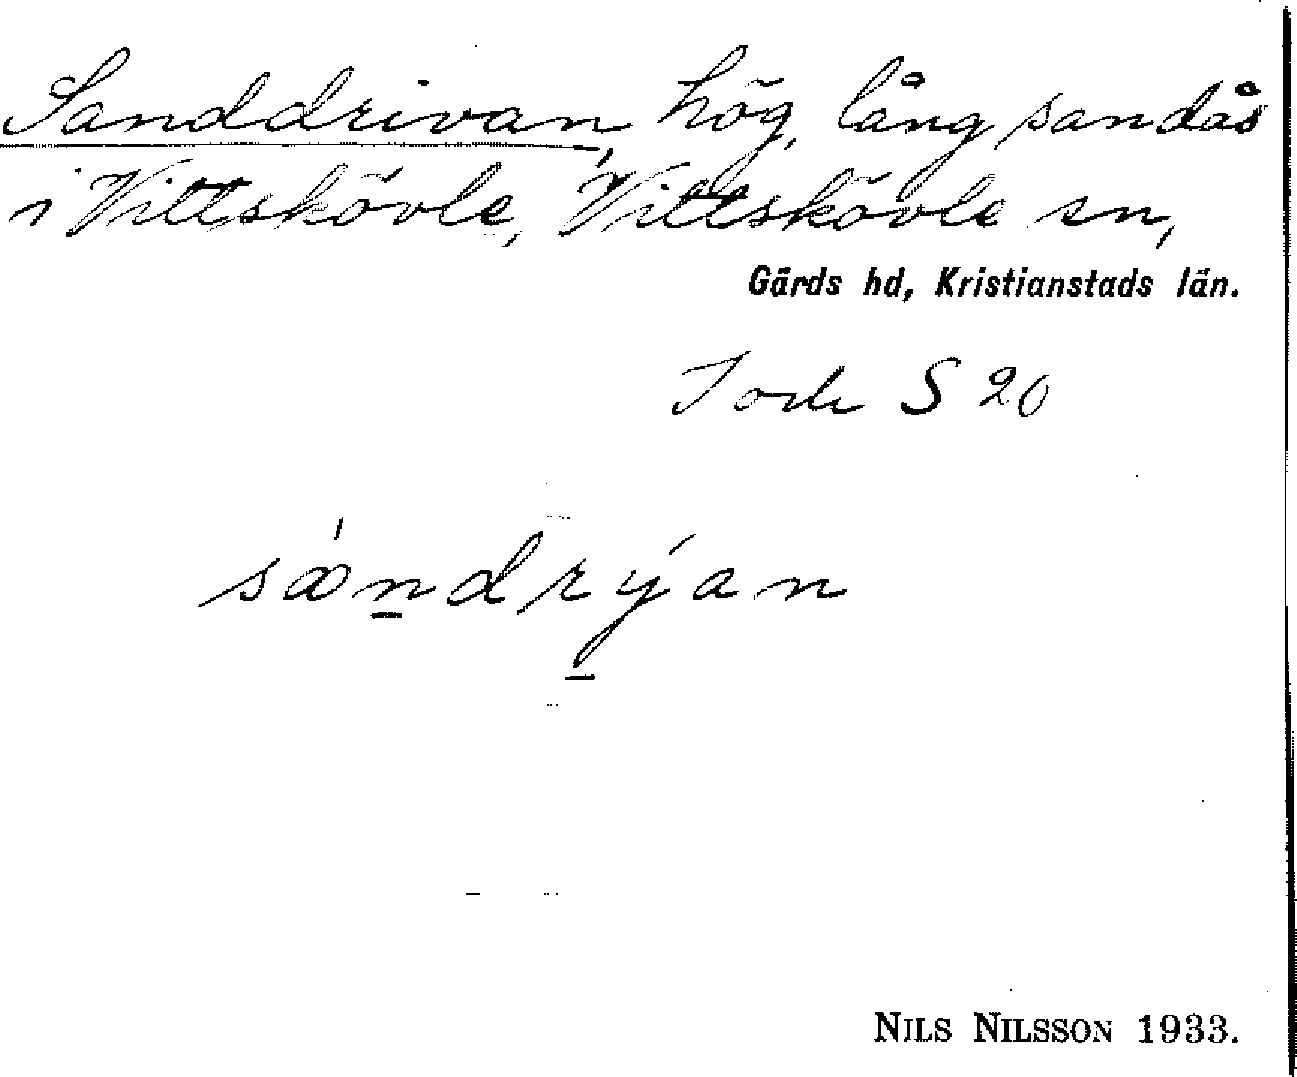 Sanddrivan, hög, lång sandås
i Vittskövle, Vittskövle sn,
Gärds hd, Kristianstads län.
S 20
NILS NILSSON 1933.